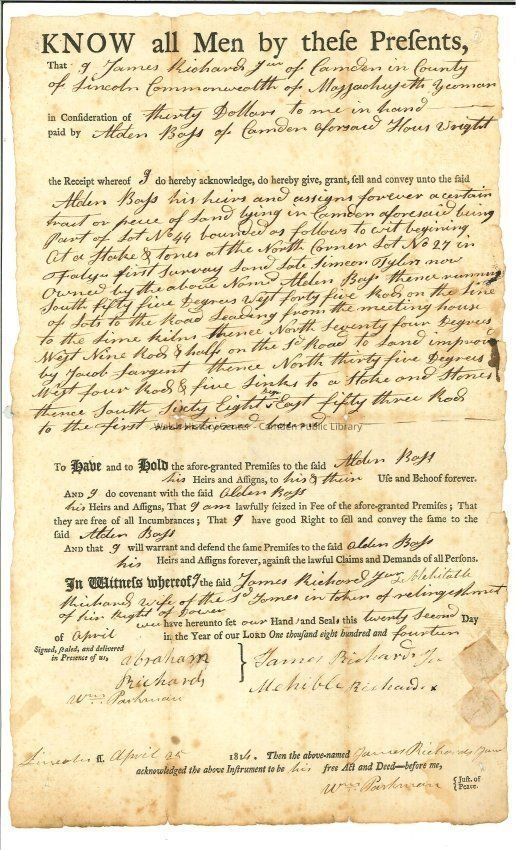 KNOW all Men by theſe Preſents,
That I James Richards Junr of Camden in County
of Lincoln Commonwealth of Massachusetts Yeoman
in Conſideration of thirty Dollars to me in hand
paid by Alden Bass of Camden aforsaid Hous Wright
the Receipt whereof I do hereby acknowledge, do hereby give, grant, ſell and convey unto the ſaid
Alden Bass his heirs and assigns forever a certain
tract or peice of Land lying in Camden aforesaid being
Part of Lot No 44 bounded as follows to wit begining
At a Stake & stones at the North Corner Lot No 27 in
first survay Land Late Simeon Tyler now
Owned by the above Namd Alden Bass thence running
South fifty five Degrees West forty five Rods on the Line
of Lots to the Road Leading from the meeting house
to the Lime kilns thence North Seventy four Degrees
West Nine Rods & half on the sd Road to Land improvd
by Jacob Sargent thence North thirty five Degrees
West four Rods & five Links to a Stake and Stones
thence South Sixty Eight Dgs East fifty three Rods
to the first mentioned bound
Walsh History Center - Camden Public Library
To Have and to Hold the afore-granted Premiſes to the ſaid Alden Bass
his Heirs and Aſſigns, to his & their Uſe and Behoof forever.
AND I do covenant with the ſaid Alden Bass
his Heirs and Aſſigns, That I am lawfully ſeized in Fee of the afore-granted Premiſes; That
they are free of all Incumbrances; That I have good Right to ſell and convey the ſame to the
ſaid Alden Bass
And that I will warrant and defend the ſame Premiſes to the ſaid Alden Bass
his Heirs and Aſſigns forever, againſt the lawful Claims and Demands of all Perſons.
In Witneſs whereof, I the ſaid James Richards Junr & Mehitable
Richards Wife of the Sd James in token of relingeshmet
of hir Right of Dower
we have hereunto ſet our Hand s and Seals this twenty Second Day
of April in the Year of our LORD One thouſand eight hundred and fourteen
Signed, ſealed, and delivered
in Preſence of us,
Abraham
Richards
Wm Parkman
James Richards Jr
Mehible Richards x
Lincoln ſſ. April 25 1814. Then the above-named James Richards Junr
acknowledged the above Inſtrument to be his free Act and Deed—before me,
Wm Parkman { Juſt. of
Peace.